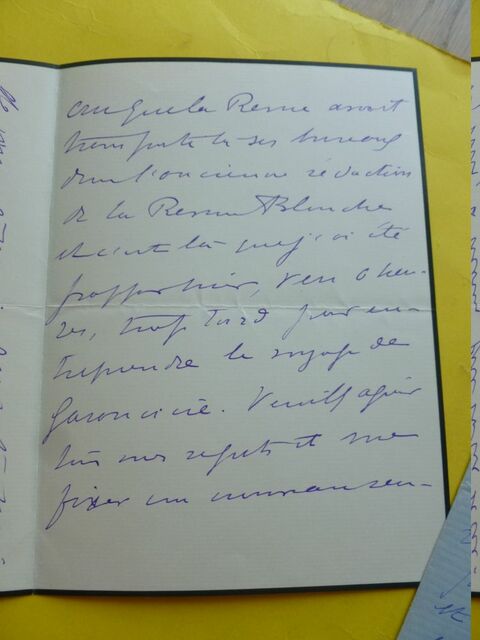 cru que la Revue avait
transporté ses bureaux
dans l'ancienne rédaction
de la Revue Blanche
et c'est là que j'ai été
frapper hier, vers 6 heu-
res, trop tard pour en-
treprendre le voyage de
. Veuillez agréer
tous mes regrets et me
fixer un nouveau ren-